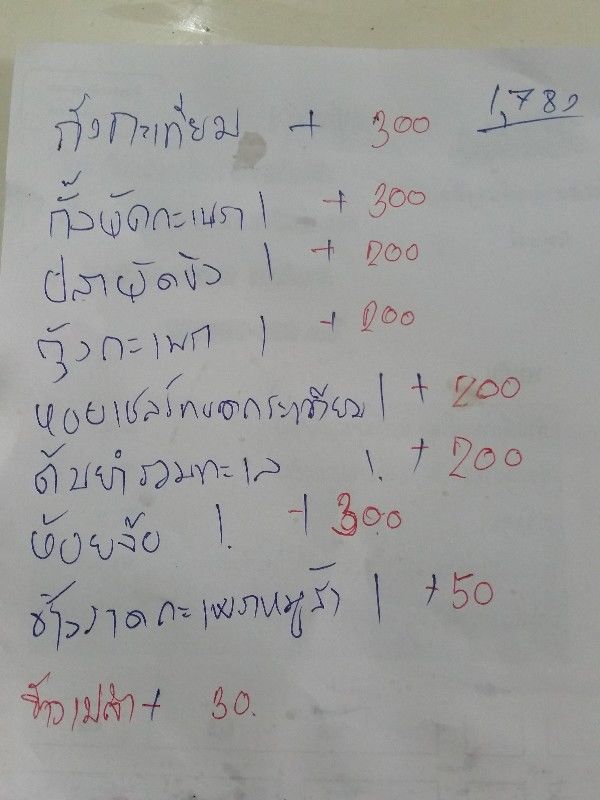 1,780
กั้งกะเทียม + 300
กั้งผัดกะเพรา 1 + 300
ปลาผัดขิง 1 + 200
กุ้งกะเพก 1 + 200
หอยเชลร์ทอดกระเทียม 1 + 200
ต้มยำรวมทะเล 1. + 200
ห้อยจ้อ 1. + 300
ข้าวราดกะเพราหมูส้า 1 + 50
ข้าวเปล่า + 30.